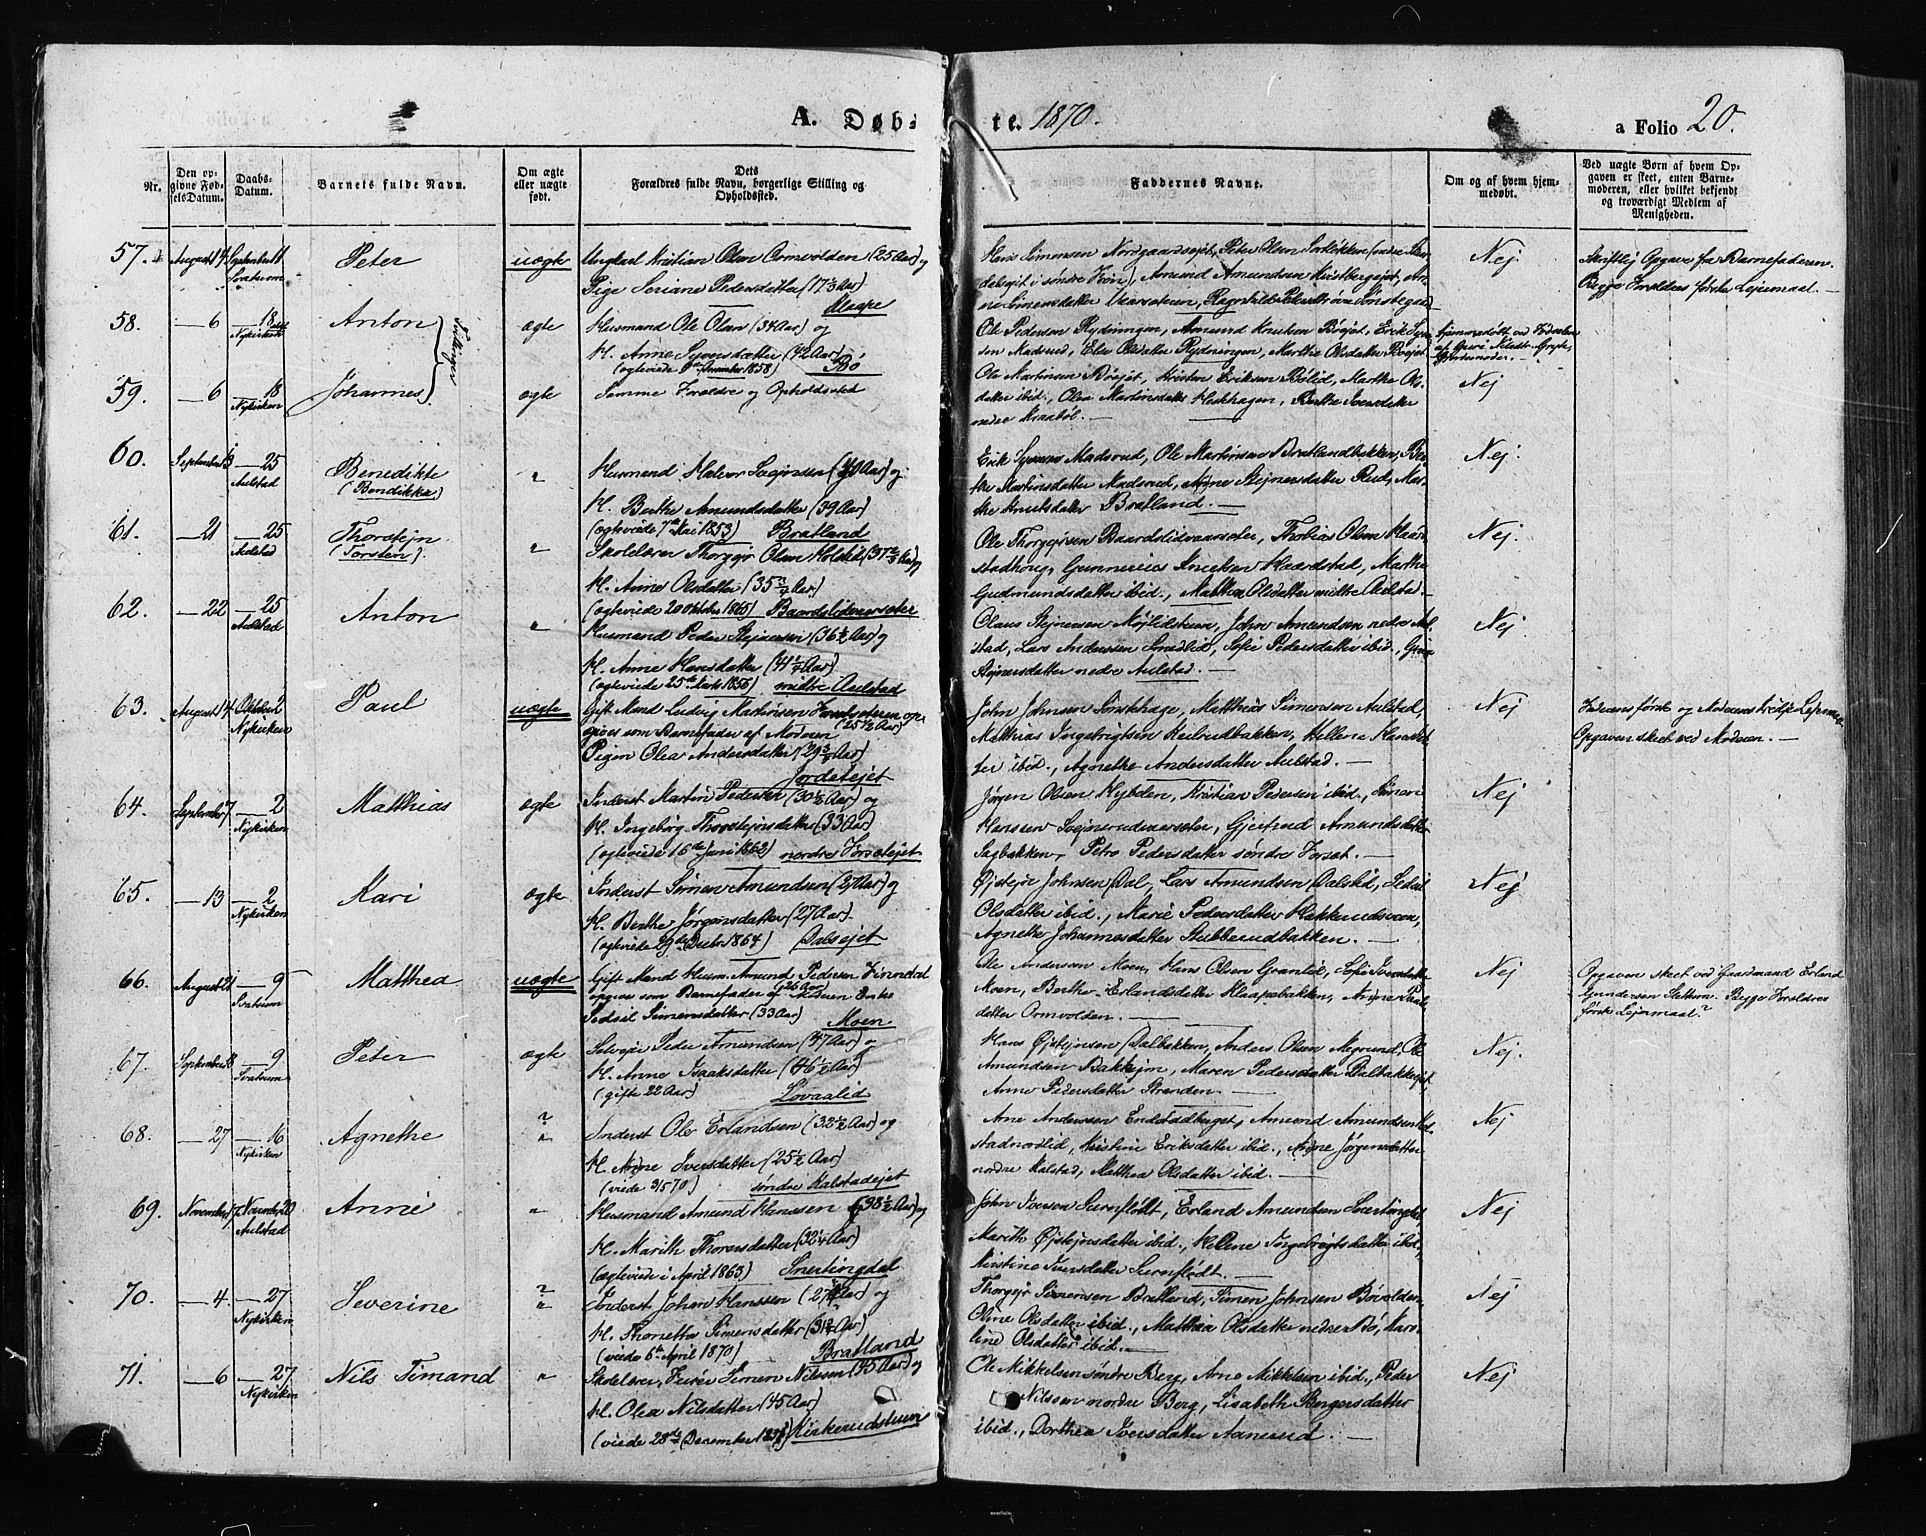 A. Døb-
te. 1870.
a Folio 20.
Nr.
Den op-
givne Fød-
selsDatum.
Daabs-
Datum.
Barnets fulde Navn.
Om ægte
eller uægte
født.
Dets
Forældres fulde Navn, borgerlige Stilling og
Opholdssted.
Faddernes Navne.
Om og af hvem hjem-
medøbt.
Ved uægte Børn af hvem Op-
gaven er skeet, enten Barne-
moderen, eller hvilket bekjendt
og troværdigt Medlem af
Menigheden.
57. August 14 September 11 Peter uægte Ungkarl Kristian Olsen Ormvolden (25 Aar) og
Svatsum
Pige Seriane Pedersdatter (17½ Aar)
Klaape
Hans Simensen Nordgaardsejet, Peter Olsen
Amund Amundsen
Nej
Skriftlig Opgave fra Barnefaderen.
Begge Forældres første Lejermaal. —
58. — 6 — 18 Anton Tvillinger ægte Husmand Ole Olsen (34 Aar) og
Nykirken
K. Anne Syversdatter (42 Aar)
(ægteviede December 1858) Bø
Ole Pedersen Rydningen, Amund Knutsen Bøejet, Erik Syver-
sen Madsrud, Eli Olsdatter Rydningen, Marthe Olsdatter Bøejet
59. — 6 18 Johannes ægte Samme Forældre og Opholdssted
Nykirken
Ole Martinsen Bøejet, Kristen Eriksen Bølid, Marthe Ols-
datter ibid., Olea Martinsdatter Heskhagen, Berthe Iversdatter
nedre Kraabøl. —
Nej
60. September 13 — 25 Benedikte " Husmand Halvor Svejnsen (40 Aar) og
Aulstad
(Bendikka)
K. Berthe Amundsdatter (39 Aar)
(ægteviede 7de Mai 1853) Bratland
Erik Syversen Madsrud, Ole Martinsen Bratlandbakken, Ber-
the Martinsdatter Madsrud, Anne Stejnersdatter Rud, Mar-
the Knutsdatter Bratland. —
Nej.
61. — 21 — 25 Thorstejn " Skolelærer Thorgejr Olsen Holslid (37⅔ Aar) og
Aulstad
(Torsten).
K. Anne Olsdatter (35¾ Aar)
(ægteviede 20 Oktober 1865) Baardslidvaarsæter
Ole Thorgejrsen Baardslidvaarsæter, Thobias Olsen Kaar-
stadhoug, Gunnerius Knutsen Kaardstad, Marthe
Gudmundsdatter ibid., Mathea Olsdatter midtre Aulstad. —
Nej.
62. — 22 — 25 Anton " Husmand Peder Stejnersen (36½ Aar) og
Aulstad
K. Anne Hansdatter (41¼ Aar)
(ægteviede 25de Marts 1856) midtre Aulstad
Olaus Stejnersen Møjlidstuen, John Amundsen nedre Aul-
stad, Lars Anderssen Smedlid, Sofie Pedersdatter ibid., Guri
Stejnersdatter nedre Aulstad. —
Nej.
63. August 14 Oktober 2 Paul uægte Gift Mand Ludvig Martinsen op-
Nykirken
(25½ Aar)
gives som Barnefader af Moderen
Pigen Olea Andersdatter (29¾ Aar)
Jordetejet
John Johnsen Forskhage, Matthias Simensen Aulstad,
Mathias Ingebrigtsen Keiserudbakken, Hellene Hansdat-
ter ibid., Agnethe Andersdatter Aulstad. —
Nej
Faderens første og Moderens tredje Lejermaal
Opgaven skeet ved Moderen. —
64. September 7 — 2 Matthias ægte Inderst Martin Pedersen (30½ Aar) og
Nykirken
K. Ingebørg Thorstejnsdatter (33 Aar)
(ægteviede 16de Juni 1862) nordre Forsetejet
Jørgen Olsen Kybden, Kristian Pedersen ibid., Simen
Hanssen Svejnerudvaarsæter, Gjertrud Amundsdatter
Sagbakken, Petra Pedersdatter søndre Forset. —
Nej
65. — 13 — 2 Kari ægte Inderst Simen Amundsen (27 Aar) og
Nykirken
K. Berthe Jørgensdatter (27 Aar).
(ægteviede 29de Decbr 1864) Dalsejet
Øistejn Johnsen Dal, Lars Amundsen Dalslid, Sedsil
Olsdatter ibid., Marie Pedersdatter Hakkerudsveen,
Agnethe Johannesdatter Stubberudbakken. —
Nej
66. August 21 — 9 Matthea uægte Gift Mand Husm. Amund Pedersen Finnstad
Svatsum
(26 Aar)
opgives som Barnefader af Moderen Enke
Sedsil Simensdatter (33 Aar) Moen
Ole Andersen Moen, Hans Olsen Granlid, Sofie Iversdatter
Moen, Berthe Erlandsdatter Klaapebakken, Anne Paul-
datter Ormvolden. —
Nej
Opgaven skeet ved Gaardmand Erland
Gundersen Slettum. Begge Forældres
første Lejermaal?
67. September 8 — 9 Peter ægte Selvejer Peder Amundsen (47 Aar) og
Svatsum
K. Anne Isaaksdatter (46½ Aar)
(gifte 22 Aar) Lovaalid
Hans Øistejnsen Dalbakken, Anders Olsen Megrund, Ole
Amundsen Bakkejen, Maren Pedersdatter Dalbakkejet,
Anne Pedersdatter Stranden —
Nej.
68. — 27 — 16 Agnethe " Inderst Ole Erlandsen (32½ Aar) og
Nykirken
K. Anne Iversdatter (25½ Aar)
(viede 3/5 70) søndre Kalstadejet
Arne Anderssen Endestadberget, Amund Amundsen Kal-
stadnordlid, Kristine Eriksdatter ibid., Anne Jørgensdatter
nordre Kalstad, Matthea Olsdatter ibid. —
Nej
69. November 7 November 20 Anne " Husmand Amund Hanssen (38½ Aar) og
Aulstad
K. Marith Thoresdatter (32¼ Aar)
(ægteviede i April 1863) Snertingdal
John Iversen Surnflødt, Erland Amundsen Snertingdal,
Marith Øistejnsdatter ibid., Helene Ingebrigtsdatter ibid.,
Kirstine Iversdatter Surnflødt. —
Nej
70. — 4. — 27 Severine " Inderst Johan Hanssen (27 Aar) og
Nykirken
K. Thonetha Simensdatter (31 Aar)
(viede 6te April 1870) Bratland
Thorgejr Sørensen Bratland, Simen Johnsen Bøvolden
Oline Olsdatter ibid., Matthea Olsdatter nedre Bø, Karo-
line Olsdatter ibid. —
Nej
71. — 6 — 27 Nils Timand " Skolelærer, Fejer Simen Nilssen (45 Aar) og
Nykirken
K. Olea Nilsdatter (45 Aar)
(viede 28de December) Kirkerudstuen
Ole Mikkelsen søndre Berg, Arne Mikkelsen ibid., Peder
Nilssen nordre Berg, Lisabeth Børgersdatter
ibid., Dorthea Iversdatter Aanerud. —
Nej